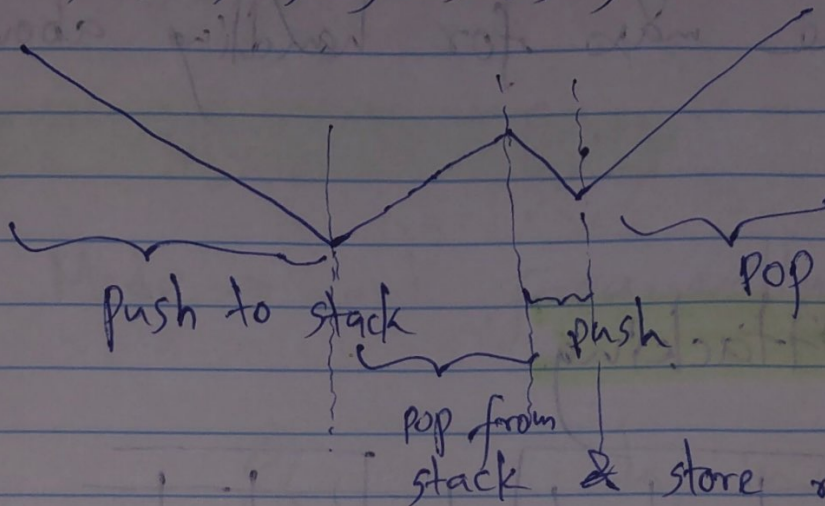 push to stack
pop
push
pop from
stack & store